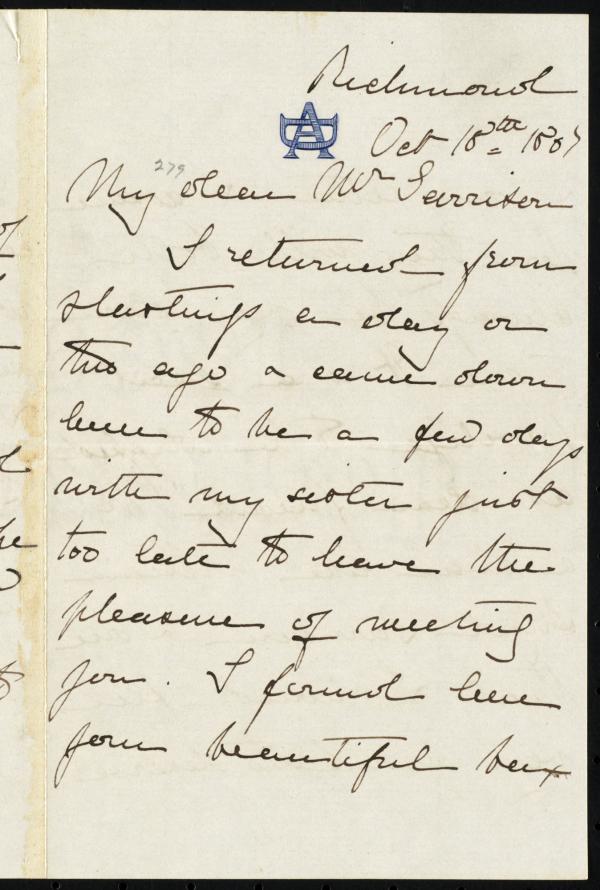 Richmond
Oct 18th 1887
279
My dear Mr Garrison
I returned from
Hastings a day or
two ago & came down
here to be a few days
with my sister just
too late to have the
pleasure of meeting
you. I found here
your beautiful box